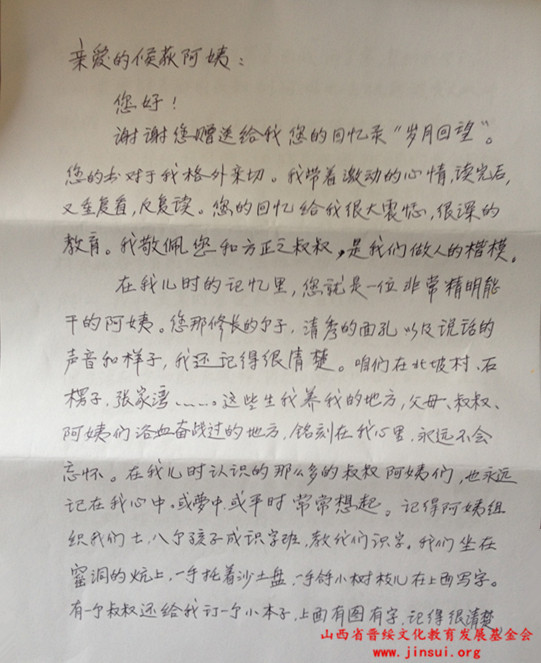 亲爱的候荻阿姨：
您好！
谢谢您赠送给我您的回忆录“岁月回望”。
您的书对于我格外亲切。我带着激动的心情，读完后，
又重复看，反复读。您的回忆给我很大震憾，很深的
教育。我敬佩您和方正之叔叔，是我们做人的楷模。
在我儿时的记忆里，您就是一位非常精明能
干的阿姨。您那修长的个子，清秀的面孔以及说话的
声音和样子，我还记得很清楚。咱们在北坡村、石
楞子、张家湾……这些生我养我的地方，父母、叔叔、
阿姨们浴血奋战过的地方，铭刻在我心里，永远不会
忘怀。在我儿时认识的那么多的叔叔阿姨们，也永远
记在我心中。或梦中，或平时常常想起。记得阿姨组
织我们七、八个孩子成识字班，教我们识字。我们坐在
窑洞的炕上，一手托着沙土盘，一手拿小树枝儿在上面写字。
有一个叔叔还给我订一个小本子，上面有图有字，记得很清楚
山西省晋绥文化教育发展基金会
www.jinsui.org